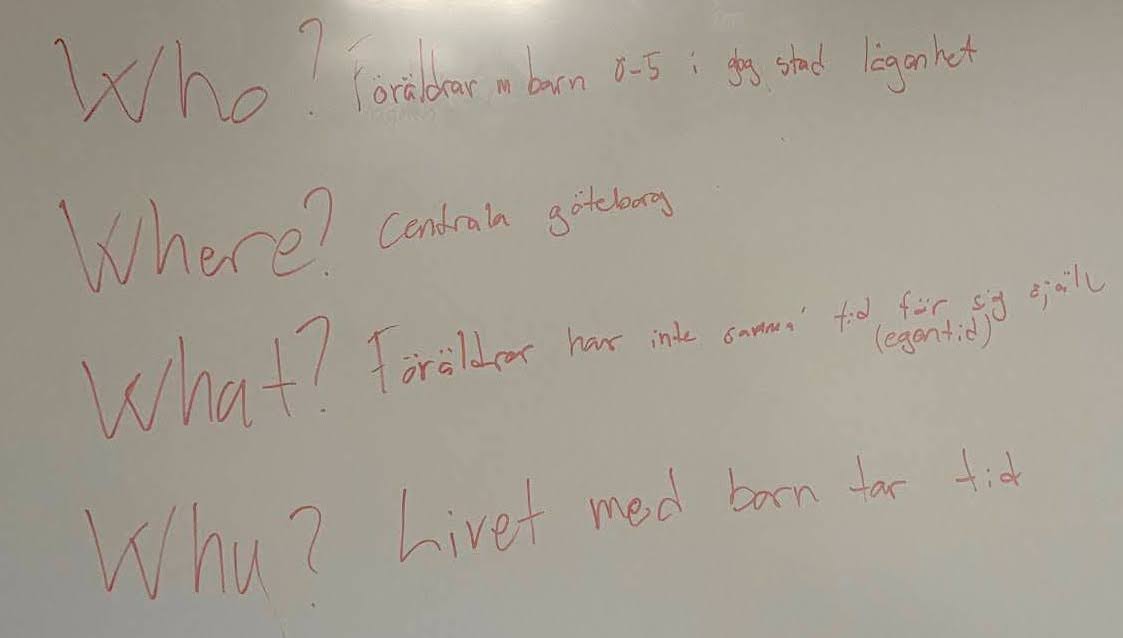 Who? Föräldrar m barn 0-5 i gbg stad lägenhet
Where? Centrala göteborg
What? Föräldrar har inte samma tid för sig själv
(egentid)
Why? Livet med barn tar tid